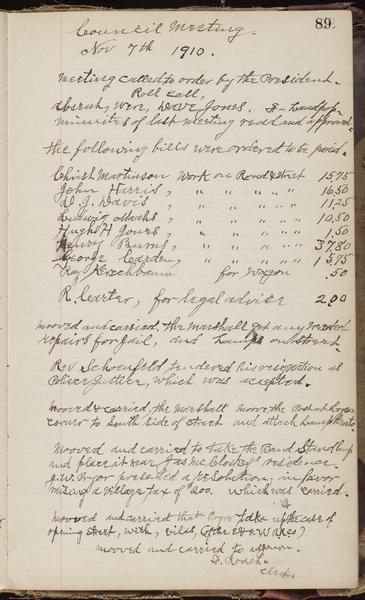 89.
Council Meeting.
Nov 7th 1910.
Meeting called to order by the President.
Roll call,
absent, were, Dave Jones.
minutes of last meeting read and approved.
the following bills were ordered to be paid.
Christ Martinson Work on Road & Street 15,75
John Harris, " " " " " 16,50
D. J. Davis, " " " " " 11,25
Ludwig " " " " " 10.50
Hugh H Jones, " " " " " 1.50
Henry Burns, " " " " " 37,80
George Carden, " " " " " 15,75
Ray Kerschbaum for Wagon .50
R Carter, for legal advice 2.00
mooved and carried, the Marshall get any needed
repairs for jail, and Lamps on street.
Rev Schoenfeld tendered his resignation as
Police Justice, which was accepted.
mooved & carried, the Marshall moove the Post at
corner to South side of street and attach Lamp thereto.
Mooved and carried to take the Band Stand up
and place it near Jas McCloskey's residence
J.W. Pryor presented a resolution, in favor
raising a village tax of $200. which was carried.
mooved and carried that Pryor take up the case of
opening street, with, Vilas,
mooved and carried to adjourn.
D. Roach.
clerk.